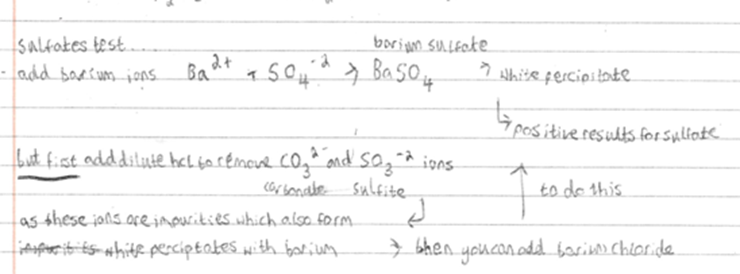 sulfates test.... barium sulfate
- add barium ions Ba²⁺ + SO₄⁻² → BaSO₄ → white percipitate
↳ positive results for sulfate
but first add dilute hcl to remove CO₃²⁻ and SO₃⁻² ions
carbonate sulfite to do this
as these ions are impurities which also form
white perciptates with barium → then you can add barium chloride